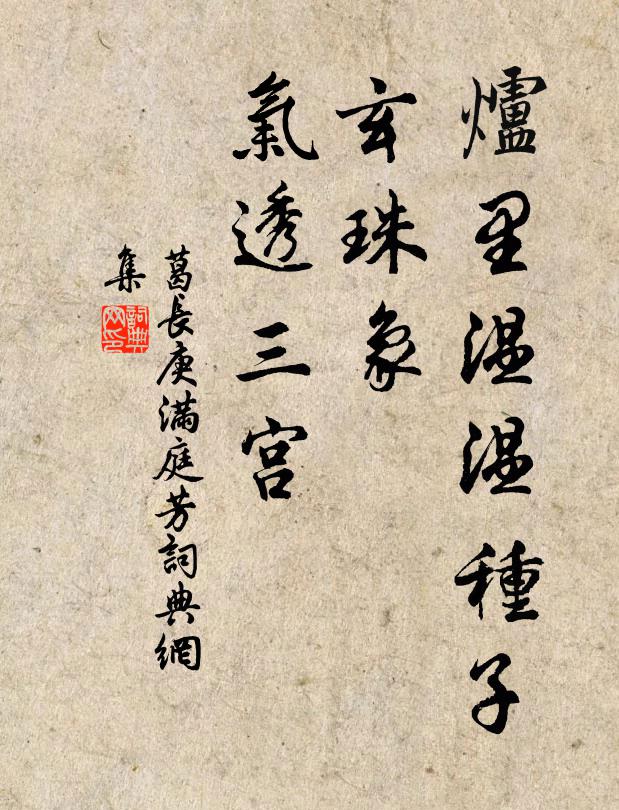 爐里温温種子
玄珠象
氣透三宫
葛長庚滿庭芳詞典網
集
詞典
网印